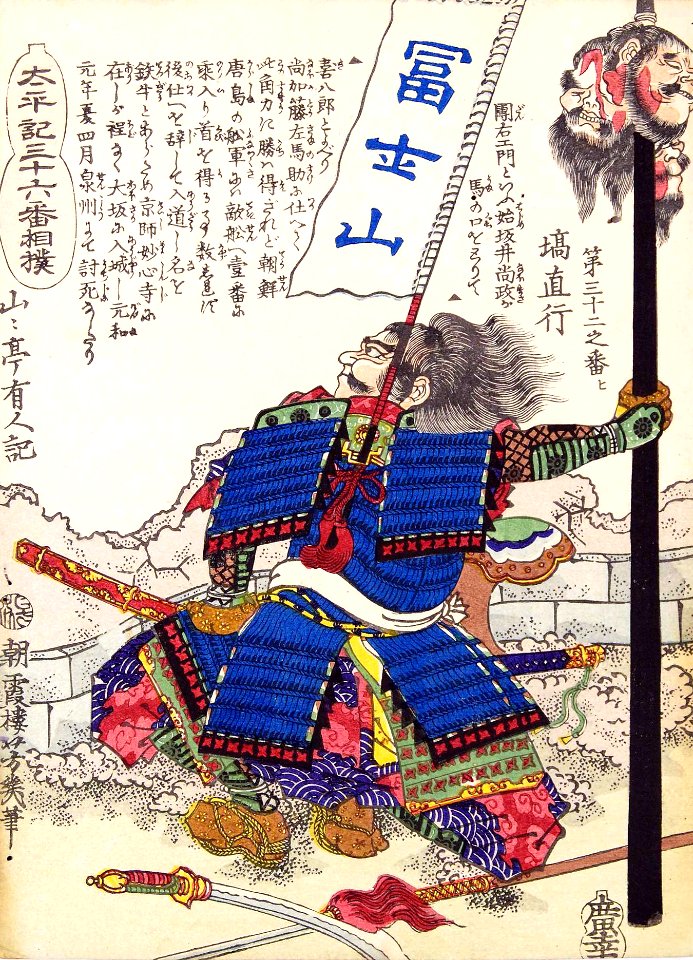 太平記三十六番相撲
第三十二之番ヒ
塙直行
團右エ門といふ始坂井尚政が
馬の口をとりて
喜八郎といへり
尚加藤左馬助に仕へて
此角力に勝を得されど朝鮮
唐島の舩軍に敵舩へ壹番に
乗入り首を得る事数多也
後仕へを辞して入道し名を
鉄牛とあらため京師妙心寺に
在しが程なく大坂に入城し元和
元年夏四月泉州にて討死したり
山々亭有人記
冨士山
朝霞樓芳幾筆
廣幸